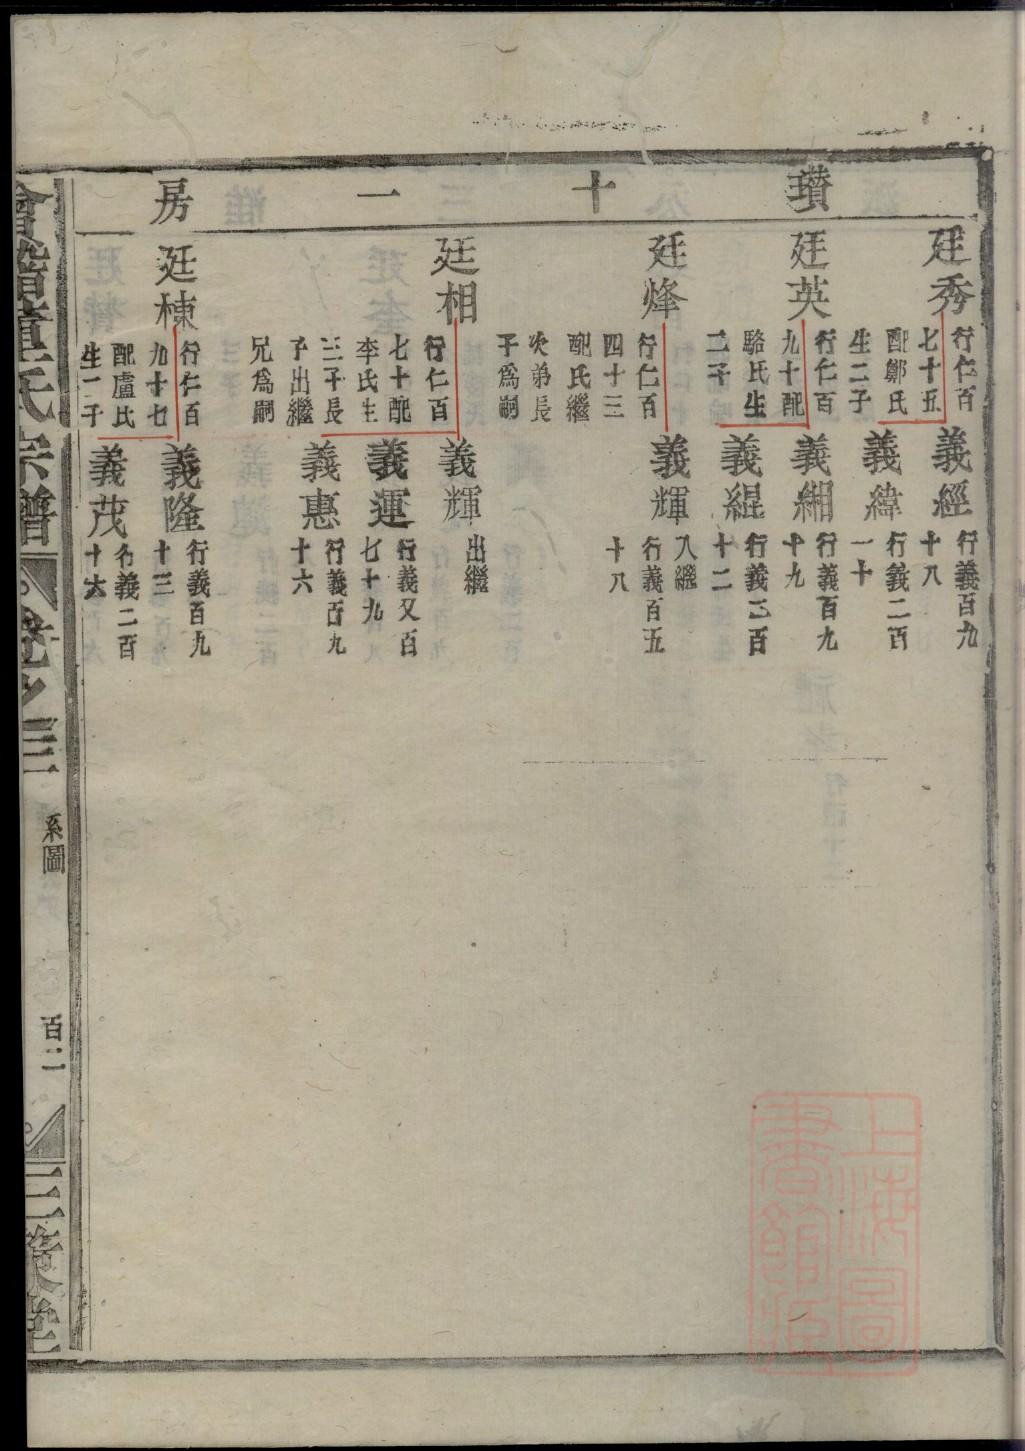 瓚十一房
廷秀
行仁百
七十五
配鄭氏
生二子
廷英
行仁百
九十配
駱氏生
二子
廷烽
行仁百
四十三
配氏繼
次弟長
子爲嗣
廷相
行仁百
七十配
李氏生
三子長
子出繼
兄爲嗣
廷棟
行仁百
九十七
配盧氏
生二子
義經
行義百九
十八
義緯
行義二百
一十
義緗
行義百九
十九
義緄
行義二百
十二
義輝
入繼
行義百五
十八
義輝
出繼
義運
行義又百
七十九
義惠
行義百九
十六
義隆
行義百九
十三
義茂
行義二百
十六
會稽董氏宗譜
卷之三
系圖
百二
三策堂
上海圖
書館藏